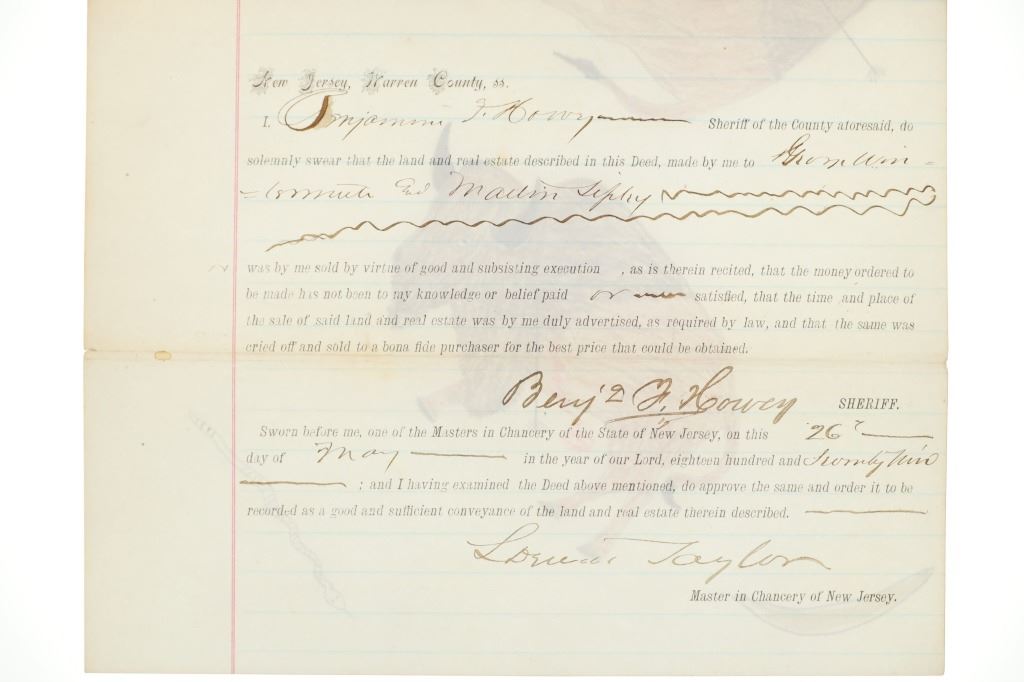 New Jersey, Warren County, ss.
I. Benjamin F. Howey Sheriff of the County aforesaid, do
solemnly swear that the land and real estate described in this Deed, made by me to
and
was by me sold by virtue of good and subsisting execution , as is therein recited, that the money ordered to
be made has not been to my knowledge or belief paid or satisfied, that the time and place of
the sale of said land and real estate was by me duly advertised, as required by law, and that the same was
cried off and sold to a bona fide purchaser for the best price that could be obtained.
Benj F. Howey SHERIFF.
Sworn before me, one of the Masters in Chancery of the State of New Jersey, on this 26
day of May in the year of our Lord, eighteen hundred and
; and I having examined the Deed above mentioned, do approve the same and order it to be
recorded as a good and sufficient conveyance of the land and real estate therein described.
Taylor
Master in Chancery of New Jersey.